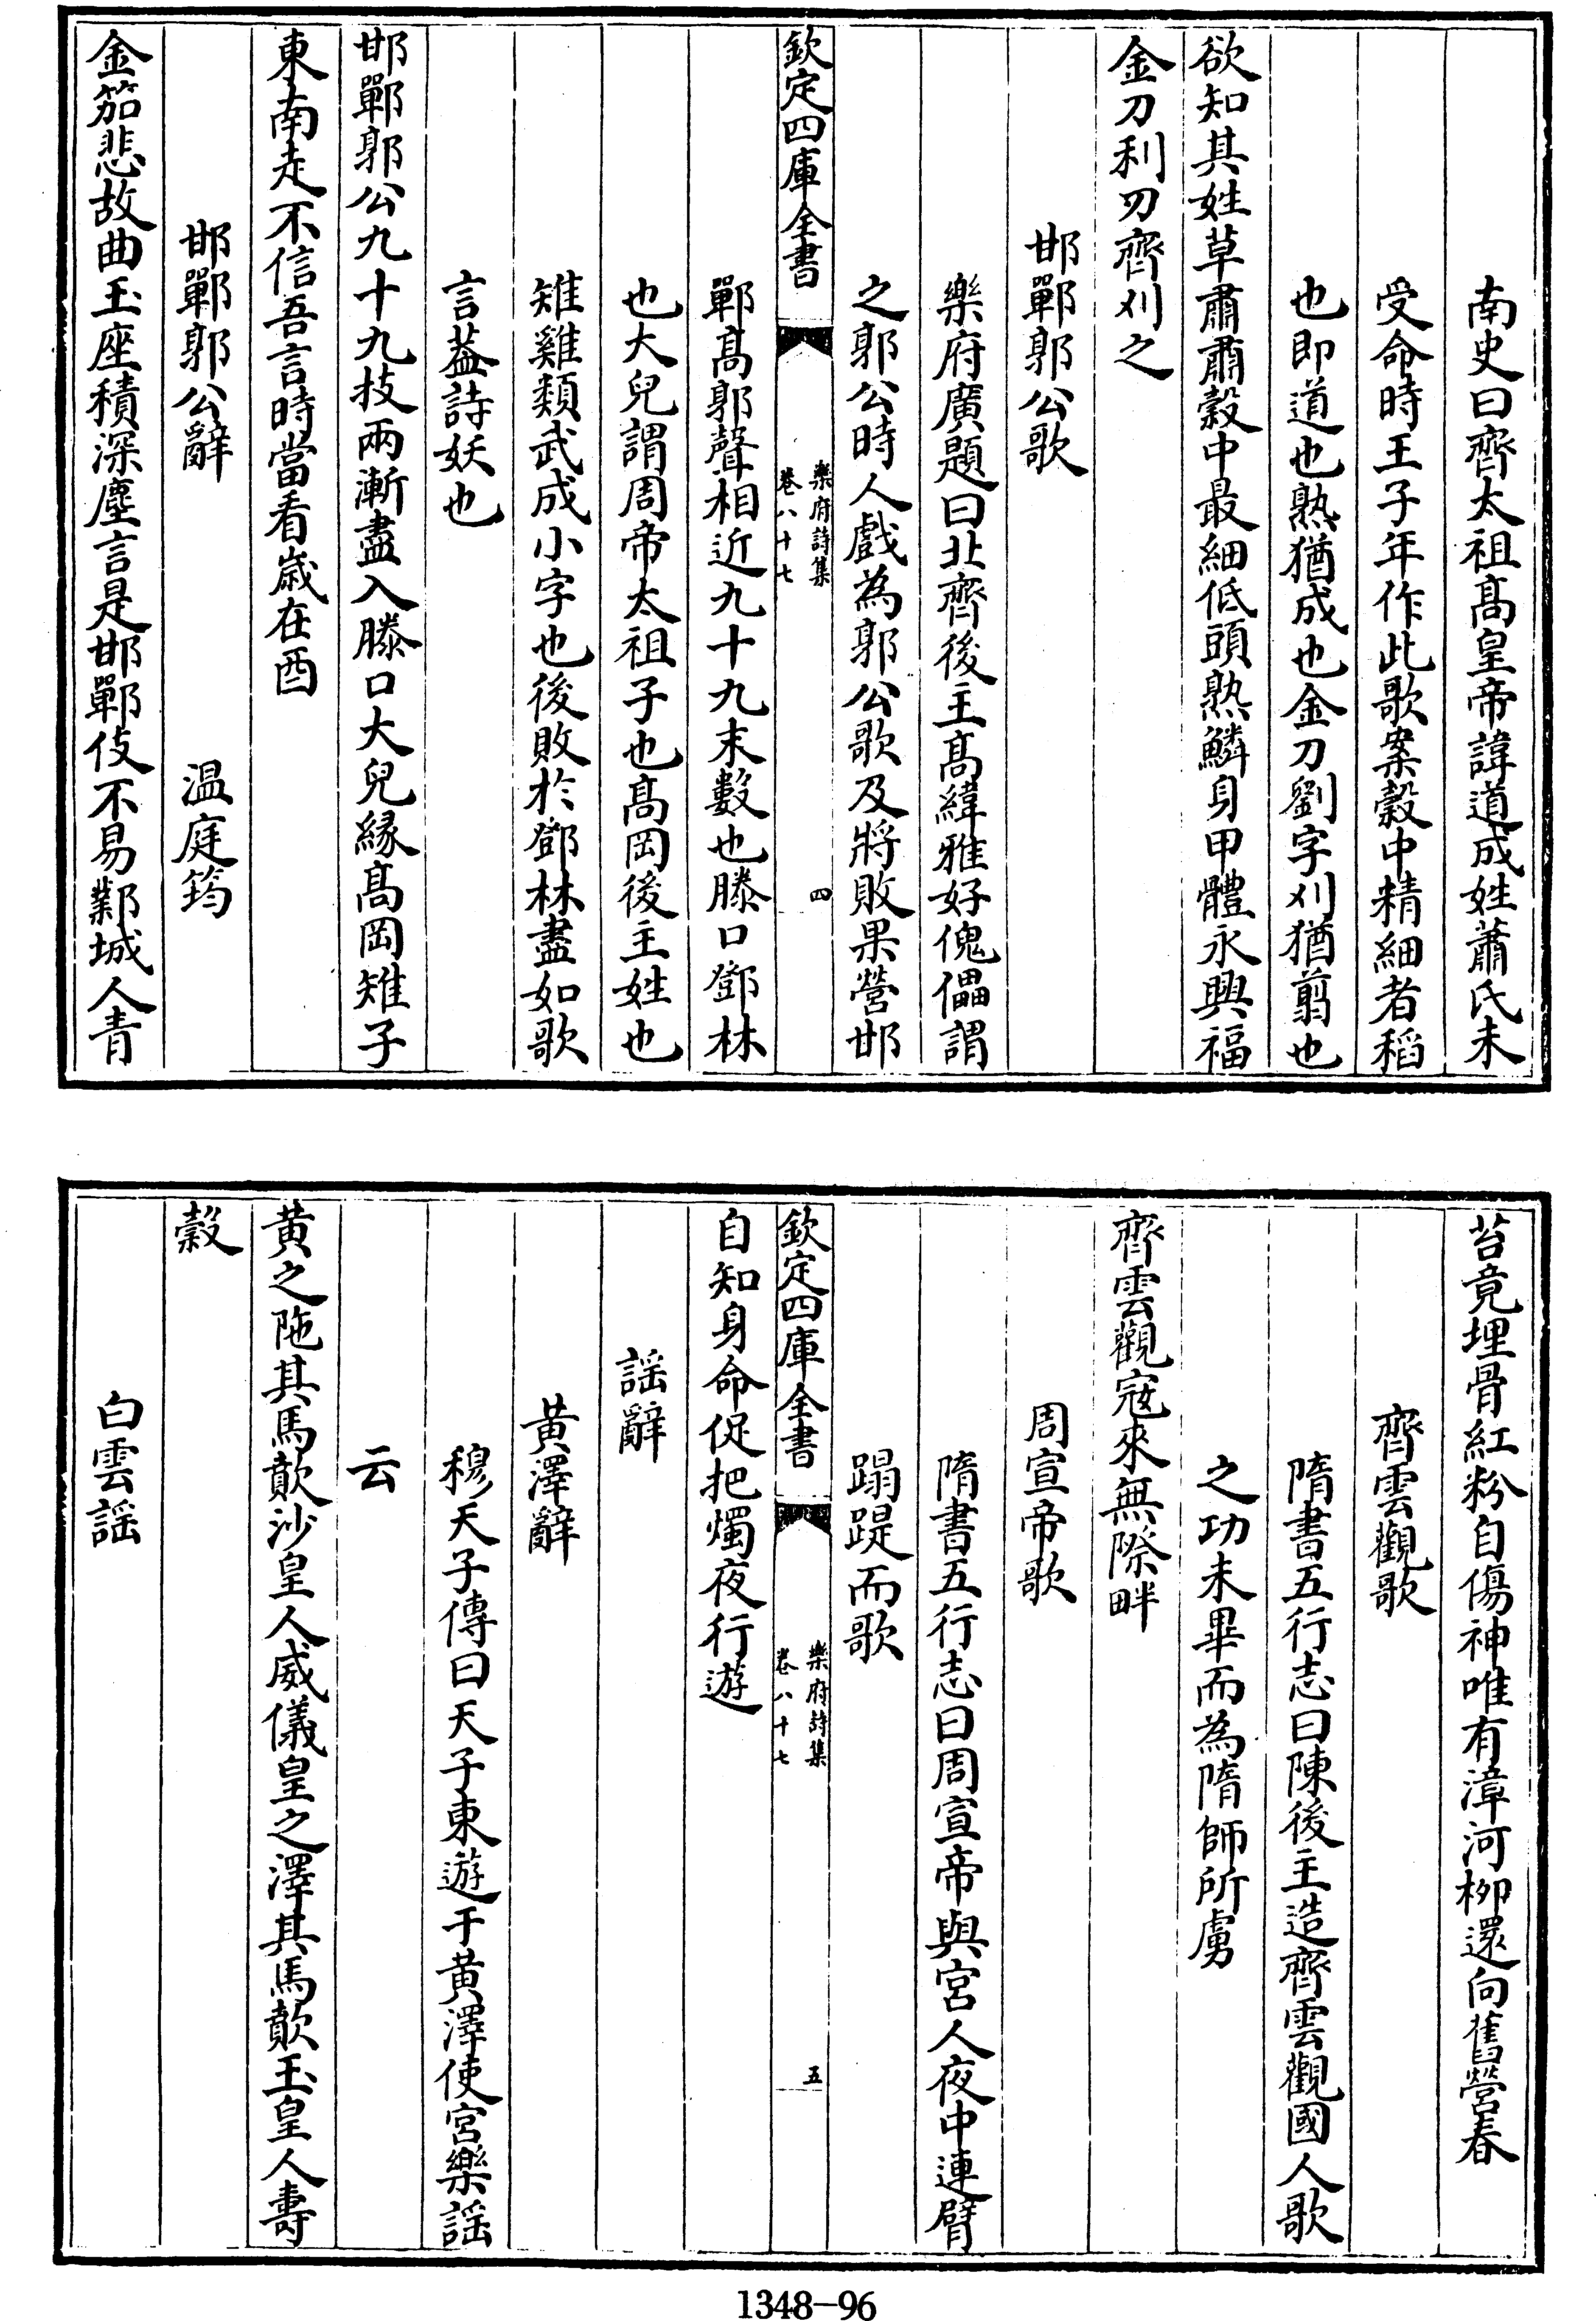 南史曰齊太祖髙皇帝諱道成姓蕭氏未
受命時王子年作此歌案穀中精細者稻
也即道也熟猶成也金刀劉字刈猶翦也
欲知其姓草肅肅穀中最細低頭熟鱗身甲體永興福
金刀利刃齊刈之
邯鄲郭公歌
樂府廣題曰北齊後主髙緯雅好傀儡謂
之郭公時人戲為郭公歌及將敗果營邯
鄲髙郭聲相近九十九末數也滕口鄧林
也大兒謂周帝太祖子也髙岡後主姓也
雉雞類武成小字也後敗於鄧林盡如歌
言葢詩妖也
邯鄲郭公九十九技兩漸盡入滕口大兒緣髙岡雉子
東南走不信吾言時當看嵗在酉
邯鄲郭公辭 温庭筠
金笳悲故曲玉座積深塵言是邯鄲伎不易鄴城人青
欽定四庫全書
樂府詩集
卷八十七
四
苔竟埋骨紅粉自傷神唯有漳河栁還向舊營春
齊雲觀歌
隋書五行志曰陳後主造齊雲觀國人歌
之功未畢而為隋師所虜
齊雲觀宼來無際畔
周宣帝歌
隋書五行志曰周宣帝與宮人夜中連臂
蹋踶而歌
自知身命促把燭夜行遊
謡辭
黄澤辭
穆天子傳曰天子東遊于黄澤使宮樂謡
云
黄之陁其馬歕沙皇人威儀皇之澤其馬歕玉皇人壽
榖
白雲謡
欽定四庫全書
樂府詩集
卷八十七
五
1348-96